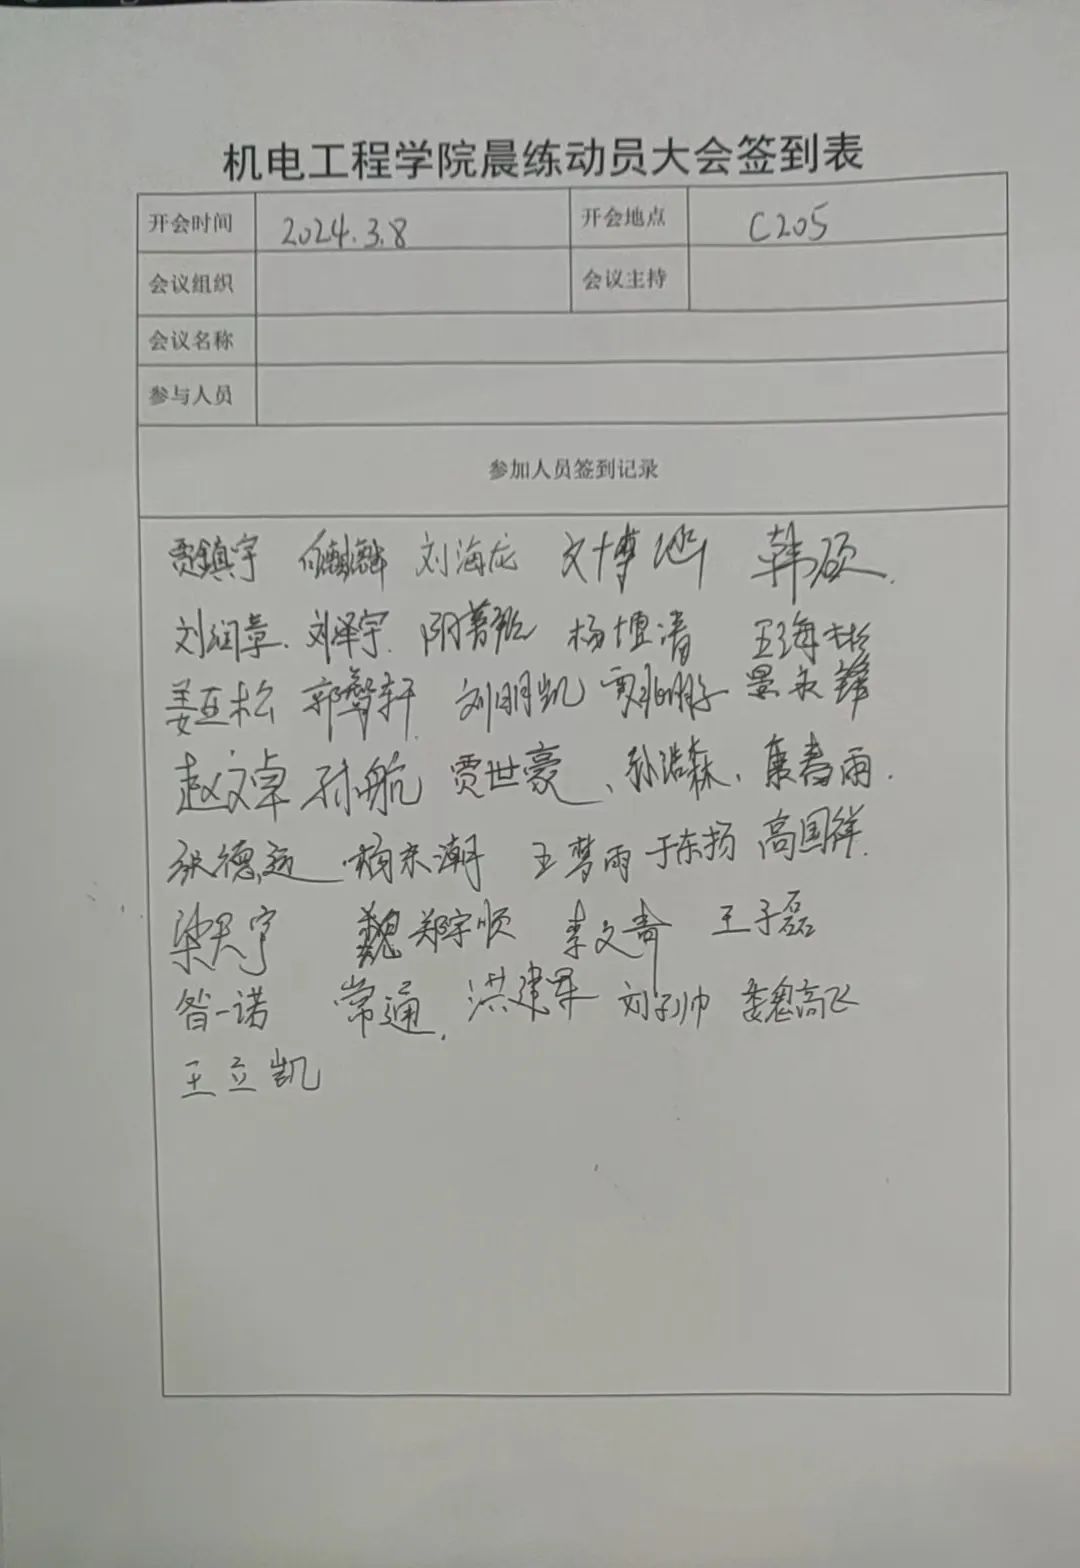 机电工程学院晨练动员大会签到表
开会时间 2024.3.8 开会地点 C205
会议组织 会议主持
会议名称
参与人员
参加人员签到记录
贾鎮宇 刘海龙 文博 韩硕.
刘润章. 刘泽宇.
姜亚松 郭 轩 刘明凯 景永锋
赵文卓 孙航 贾世豪、孙浩森、 雨.
张德远 杨东潮 王梦雨 于东扬 高国祥.
梁天宇 魏 郑宇顺 李文奇 王子磊
昝一诺 常通. 洪建军 刘子帅 魏高飞
王立凯